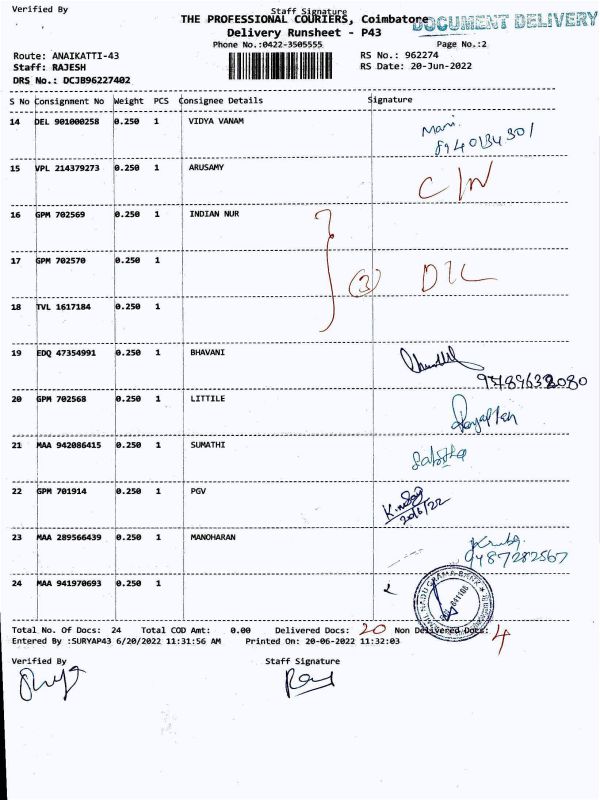 Verified By
Staff Signature
THE PROFESSIONAL COURIERS, Coimbatore
DOCUMENT DELIVERY
Delivery Runsheet - P43
Phone No.:0422-3505555
Page No.:2
Route: ANAIKATTI-43
RS No.: 962274
Staff: RAJESH
RS Date: 20-Jun-2022
DRS No.: DCJB96227402
S No Consignment No Weight PCS Consignee Details Signature
14 DEL 901000258 0.250 1 VIDYA VANAM
Mari.
8940134301
15 VPL 214379273 0.250 1 ARUSAMY
C/N
16 GPM 702569 0.250 1 INDIAN NUR
17 GPM 702570 0.250 1
3 D2L
18 TVL 1617184 0.250 1
19 EDQ 47354991 0.250 1 BHAVANI
20 GPM 702568 0.250 1 LITTILE
21 MAA 942086415 0.250 1 SUMATHI
22 GPM 701914 0.250 1 PGV
20/6/22
23 MAA 289566439 0.250 1 MANOHARAN
9487282567
24 MAA 941970693 0.250 1
Total No. Of Docs: 24 Total COD Amt: 0.00 Delivered Docs: 20 Non Delivered Docs: 4
Entered By :SURYAP43 6/20/2022 11:31:56 AM Printed On: 20-06-2022 11:32:03
Verified By Staff Signature